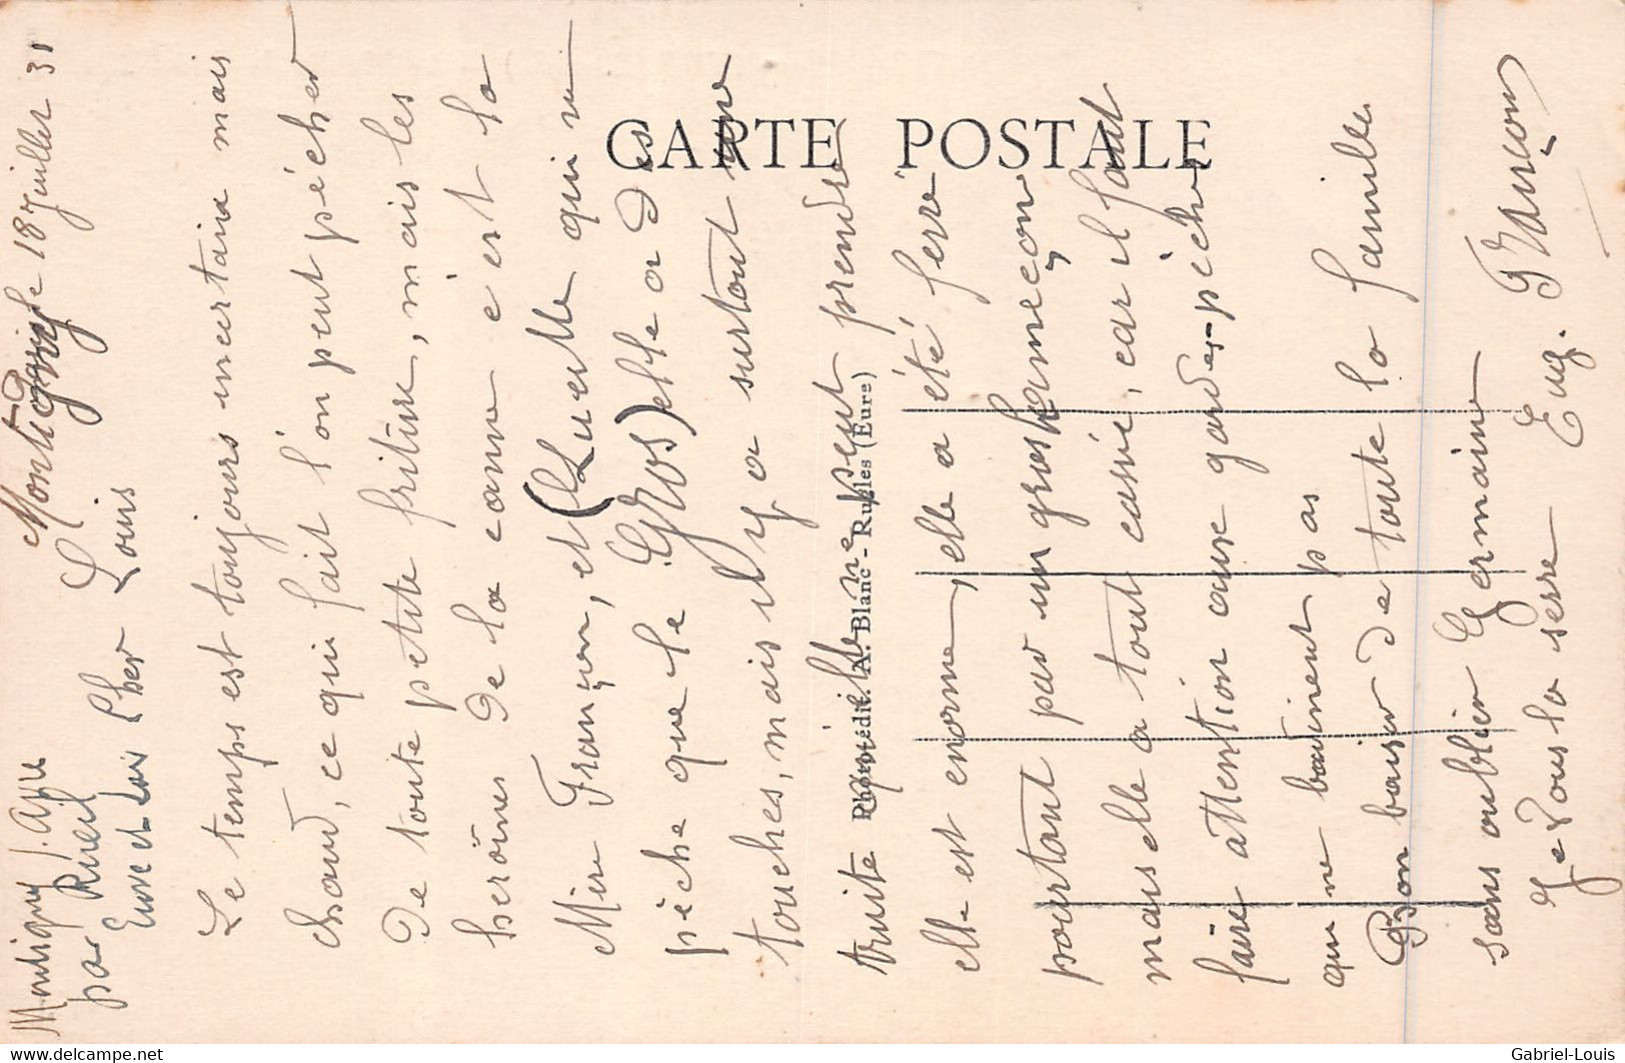 CARTE POSTALE
Photo-édit. A. Blanc - Rugles (Eure)
Montigny s/Avre
par Rueil
Eure et Loir
Montigny le 18 Juillet 31
Cher Louis
Le temps est toujours incertain mais
chaud, ce qui fait l'on peut pécher
de toute petite friture, mais les
heroïnes de la canne c'est la
Mère Françon, et (Lucette qui ne
pèche que le Gros) elle a des
touches, mais il y a surtout une
truite qu'elle ne peut prendre
elle est enorme, elle a été ferré
pourtant par un gros hameçon
mais elle a tout cassé, car il faut
faire attention aux gardes-pêche
qui ne badinent pas
Bon baiser de toute la famille
sans oublier Germaine
Je vous la serre Eug. Françon
www.delcampe.net
Gabriel-Louis